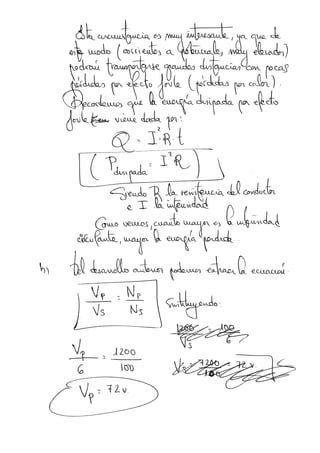 Esta circunstancia es muy interesante, ya que de
este modo (corrientes a potenciales muy elevados)
podrán transportarse grandes distancias con pocas
pérdidas por efecto Joule (pérdidas por calor).
Recordemos que la energía disipada por efecto
Joule viene dada por:
Q = I²·R t
( P disipada = I²R )
Siendo R la resistencia del conductor
e I la intensidad
Como vemos, cuanto mayor es la intensidad
circulante, mayor la energía perdida.
b) Del desarrollo anterior podemos extraer la ecuación:
Vp / Vs = Np / Ns Sustituyendo:
Vp / 6 = 1200 / 100
Vp = 72 v.